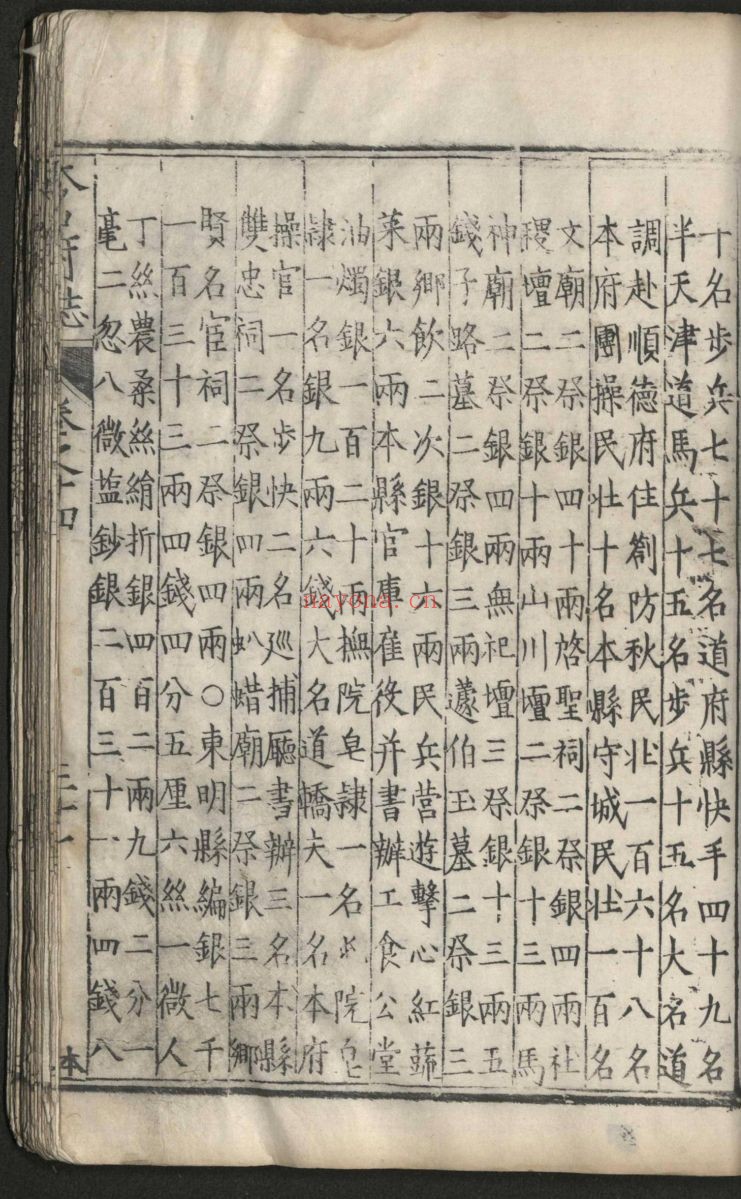 十名步兵七十七名道府縣快手四十九名
半天津道馬兵十五名步兵十五名大名道
調赴順德府住劄防秋民壯一百六十八名
本府團操民壯十名本縣守城民壯一百名
文廟二祭銀四十兩啓聖祠二祭銀四兩社
稷壇二祭銀十兩山川壇二祭銀十三兩馬
神廟二祭銀四兩無祀壇三祭銀十三兩五
錢子路墓二祭銀三兩蘧伯玉墓二祭銀三
兩鄉飲二次銀十六兩民兵營遊擊心紅蔬
菜銀六兩本縣官庫雇役并書辦工食公堂
油燭銀一百二十兩撫院皂隸一名院皂
隸一名銀九兩六錢大名道轎夫一名本府
操官一名步快二名巡捕廳書辦三名本縣
雙忠祠二祭銀四兩虲蜡廟二祭銀三兩鄉
賢名宦祠二祭銀四兩○東明縣編銀七千
一百三十三兩四錢四分五厘六絲一微人
丁絲農桑絲絹折銀四百二兩九錢二分一
毫二忽八微塩鈔銀二百三十一兩四錢八
府誌 卷之十四 本
nayona.cn